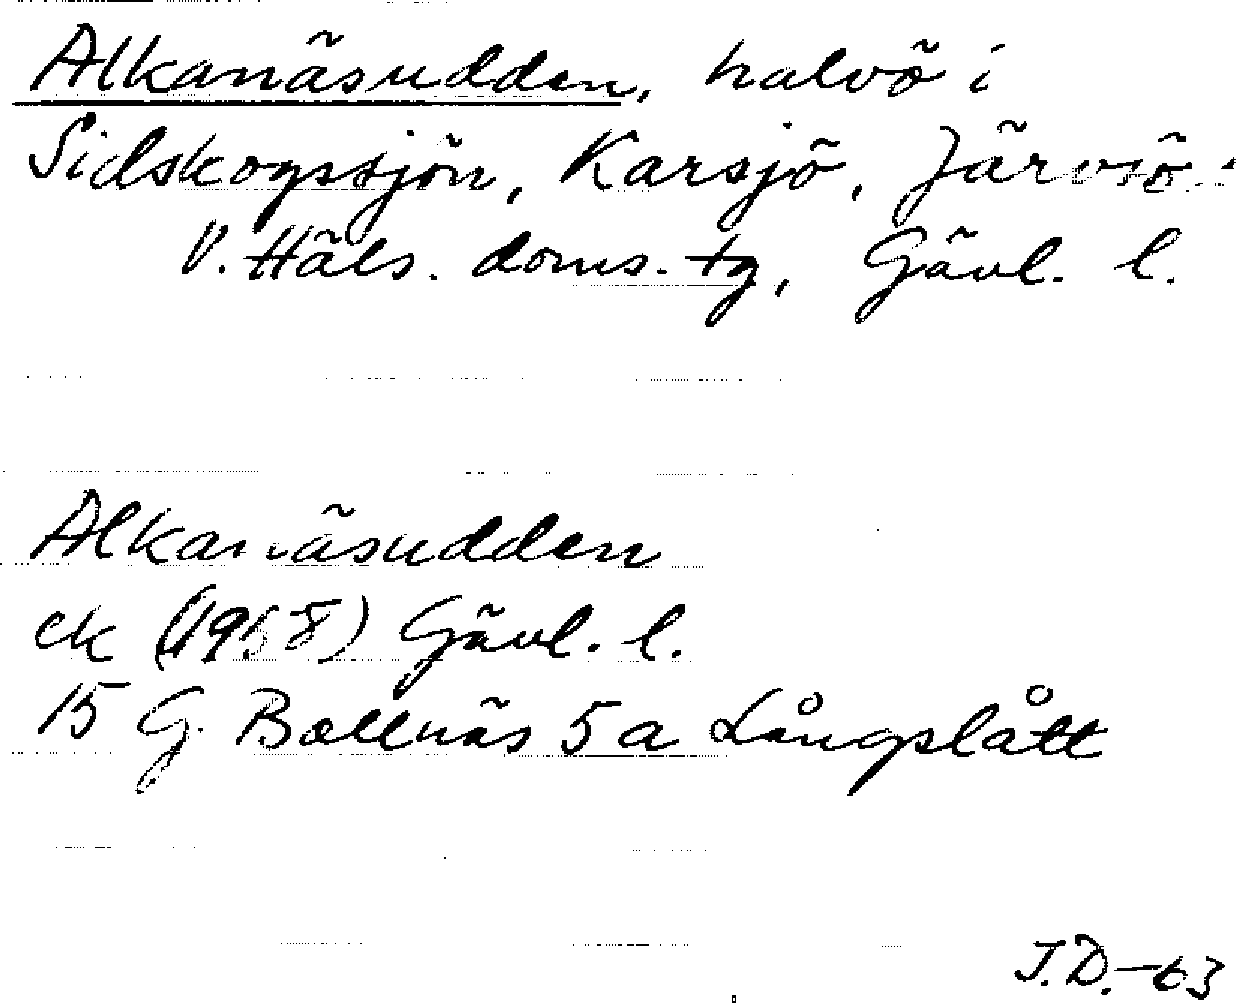 Alkanäsudden, halvö i
Sidskogssjön, Karsjö, Järvsö
V. Häls. doms. tg, Gävl. l.
Alkanäsudden
ek (1958) Gävl. l.
15 G Bollnäs 5a Långslått
J.D.-63